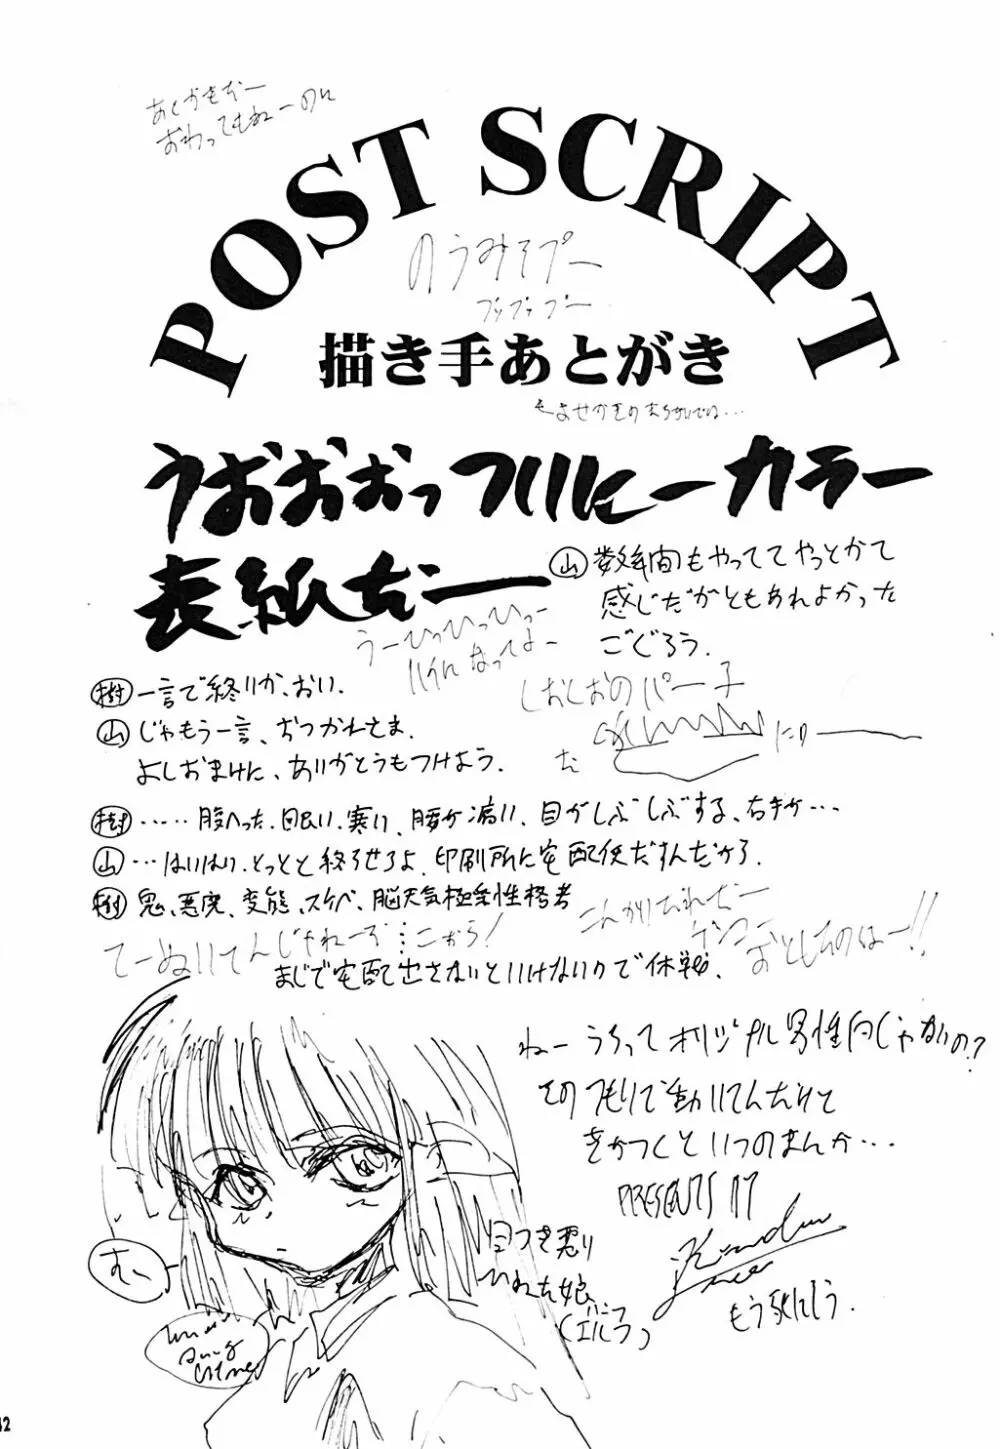 おわってもねーのに
POST SCRIPT
のうみそプー
プップップー
描き手あとがき
うおおおっついにーカラー
表紙だー
山 数年間もやっててやっとかて
感じだがともあれよかった
ごくろう.
うーひっひっひっー
ハイになってよー
樹 一言で終りか、おい.
しおしおのパー子
山 じゃもう一言、おつかれさま.
よしおまけに、ありがとうもつけよう.
樹 ……腹へった、眠い、寒い、腰が痛い、目がしぶしぶする、右手が…
山 …はいはい、とっとと終らせろよ、印刷所に宅配便だすんだから.
樹 鬼、悪魔、変態、スケベ、脳天気極楽性格者
てーぬいてんじゃねーぞ…こから!
まじで宅配出さないといけないので休戦.
おとしたのはー!!
ねーうちってオリジナル男性向じゃないの?
そのつもりで動いてんだけど
きがつくといつのまんか…
PRESENTS BY
むー
目つき悪い
ひねた娘
(エルフ)
もう死にそう.